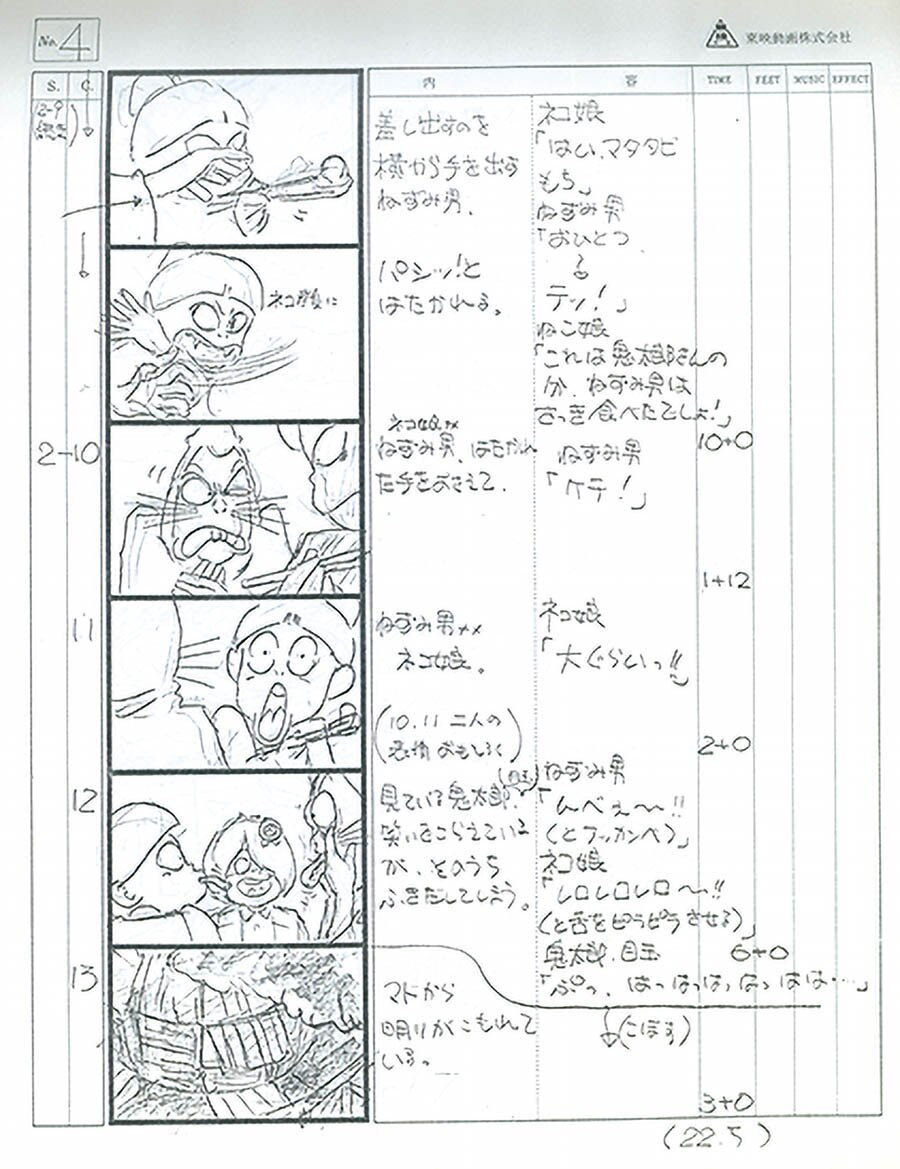 No. 4
東映動画株式会社
S. C. 内 容 TIME FEET MUSIC EFFECT
(2-9
続き)
差し出すのを
横から手を出す
ねずみ男.
ネコ娘
「はい、マタタビ
もち」
ねずみ男
「おひとつ
テッ!」
ネコ娘に
パシッ!と
はたかれる。
ねこ娘
「これは鬼太郎さんの
分、ねずみ男は
さっき食べたでしょ!」
10+0
2-10
ネコ娘××
ねずみ男、はたかれ
た手をおさえて.
ねずみ男
「ケチ!」
1+12
11
ねずみ男××
ネコ娘。
(10.11 二人の
感情おもしろく)
ネコ娘
「大ぐらいっ!!」
2+0
12
見ている鬼太郎.(目玉)
笑いをこらえている
が、そのうち
ふきだしてしまう。
ねずみ男
「んべぇ〜〜!!
(とアッカンベ)」
ネコ娘
「レロレロレロ〜!!
(と舌をピラピラさせる)」
鬼太郎.目玉
「ぷっ、はっはっはっはっはは…」
6+0
13
マドから
明りがこもれて
いる。
(こぼす)
3+0
(22.5)